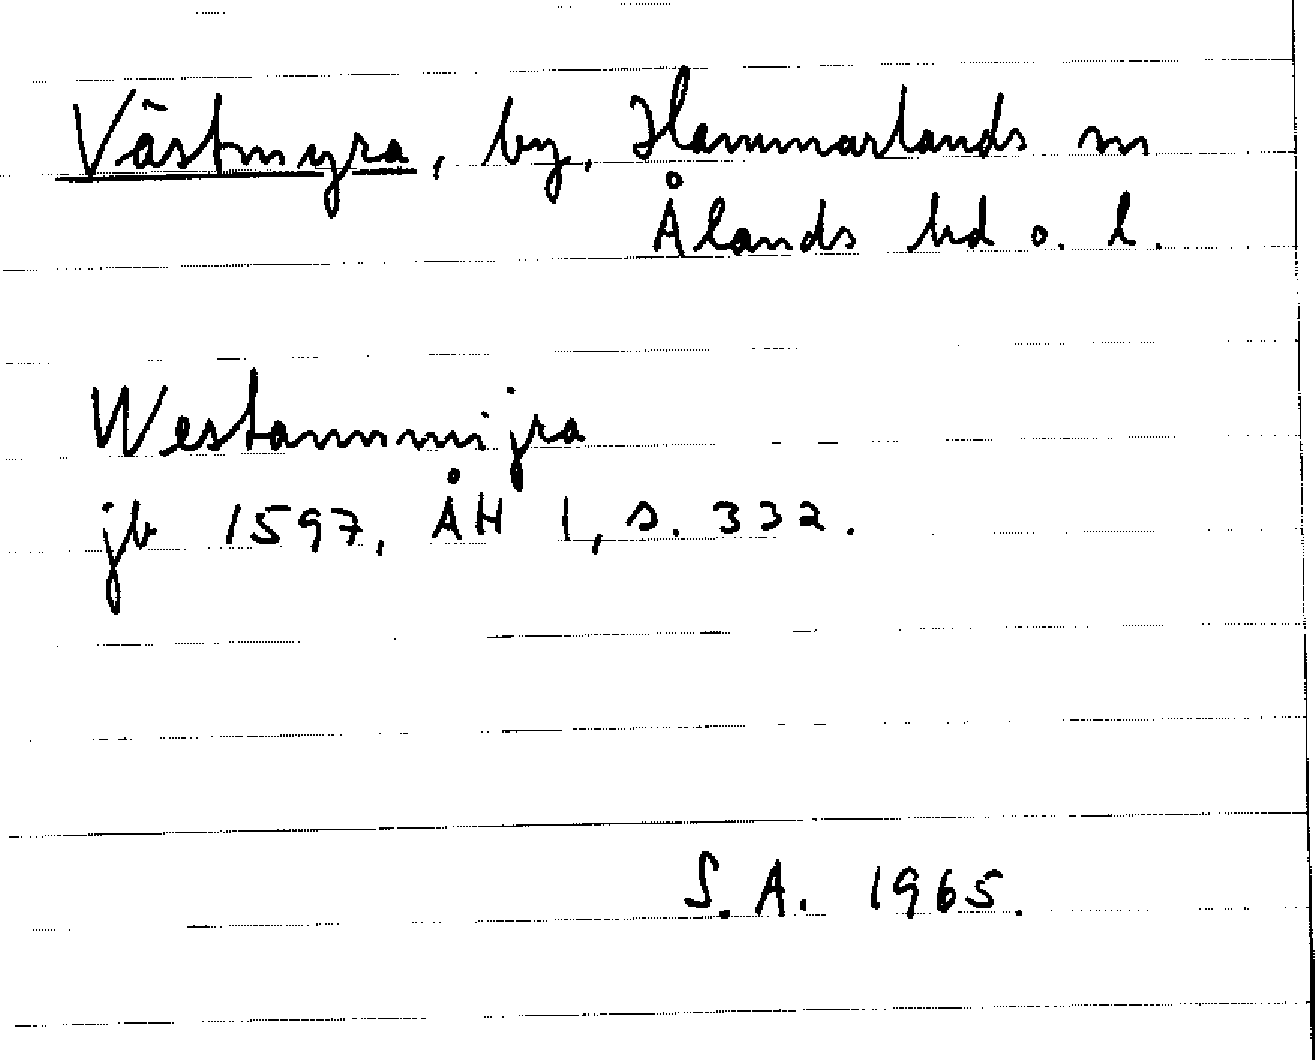 Västmyra, by, Hammarlands sn
Ålands hd o. l.
Westannmijra
jb 1597, ÅH 1, s. 332.
S. A. 1965.